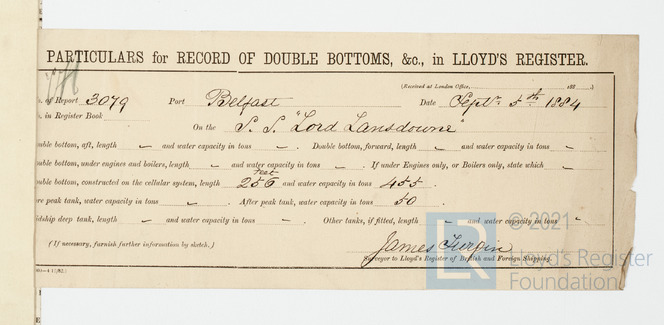 PARTICULARS for RECORD OF DOUBLE BOTTOMS, &c., in LLOYD'S REGISTER.
(Received at London Office, 188 )
o. of Report 3079 Port Belfast Date Septr. 5th 1884
o. in Register Book
On the S.S. "Lord Lansdowne"
uble bottom, aft, length " and water capacity in tons " . Double bottom, forward, length " and water capacity in tons "
uble bottom, under engines and boilers, length " and water capacity in tons " . If under Engines only, or Boilers only, state which "
uble bottom, constructed on the cellular system, length 256 feet and water capacity in tons 455 .
re peak tank, water capacity in tons " . After peak tank, water capacity in tons 50 .
idship deep tank, length " and water capacity in tons " . Other tanks, if fitted, length " and water capacity in tons "
(If necessary, furnish further information by sketch.)
James Turpin
Surveyor to Lloyd's Register of British and Foreign Shipping.
LR
© 2021
Lloyd's Register
Foundation